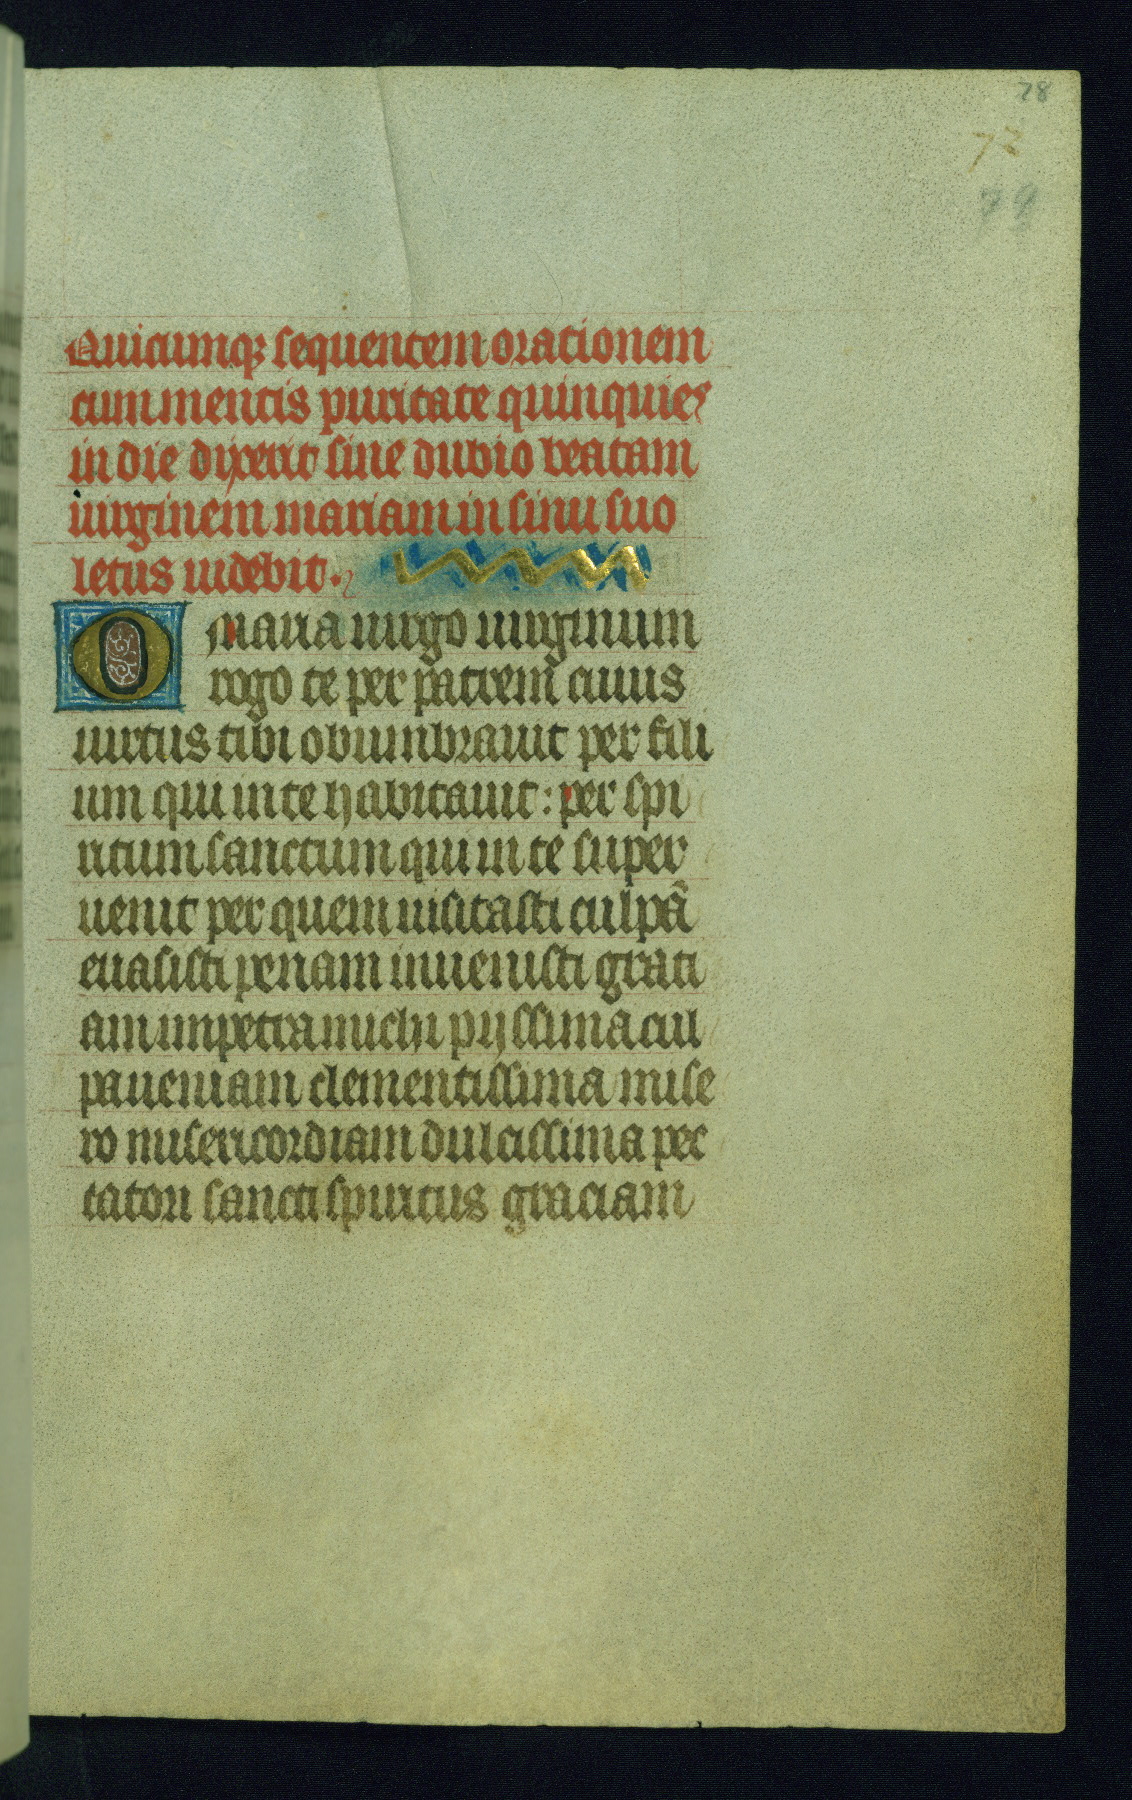 78
73
79
Quicumq; sequentem orationem
cum mentis puritate quinquies
in die dixerit sine dubio beatam
uirginem mariam in sinu suo
letus uidebit.
O maria uirgo uirginum
rogo te per patrem cuius
uirtus tibi obumbrauit per fili
um qui in te habitauit: per spi
ritum sanctum qui in te super
uenit per quem uisitasti culpā
euasisti penam inuenisti grati
am impetra michi pijssima cul
pa ueniam clementissima mise
ro misericordiam dulcissima pec
catori sancti spiritus graciam